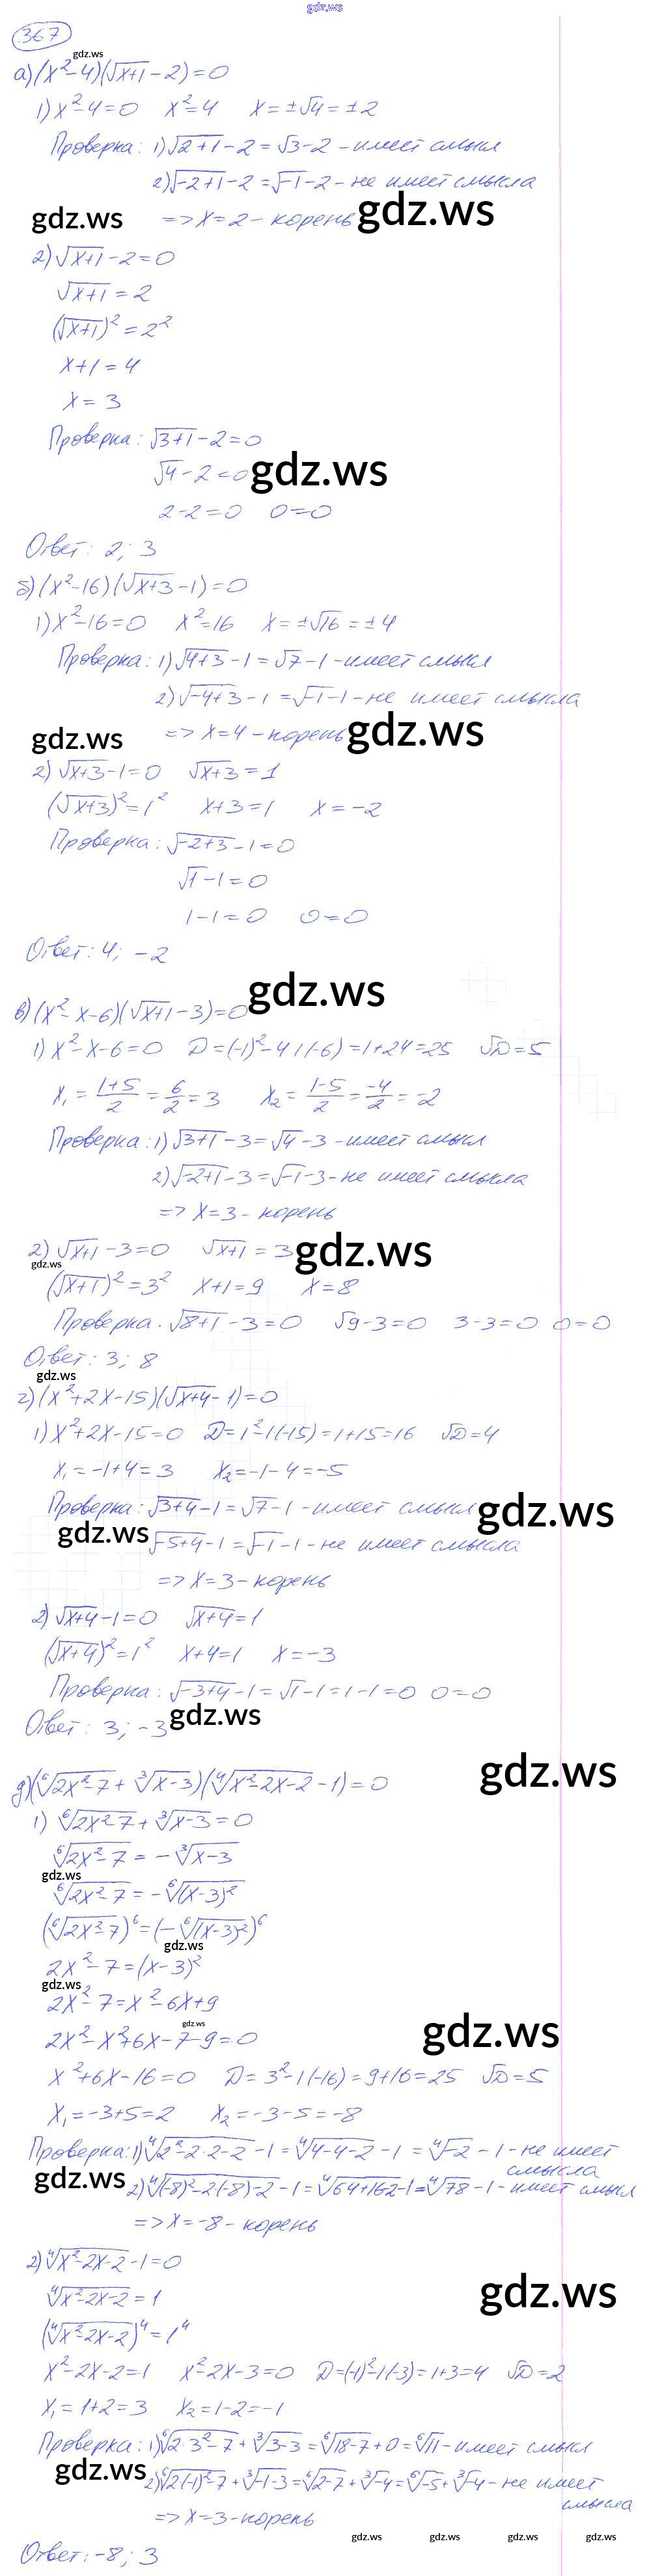 gdz.ws
367
gdz.ws
а) (x²-4)(√(x+1) - 2) = 0
1) x²-4=0 x²=4 x=±√4=±2
Проверка: 1) √(2+1) - 2 = √3-2 - имеет смысл
2) √(-2+1) - 2 = √(-1) - 2 - не имеет смысла
gdz.ws => x=2 - корень gdz.ws
2) √(x+1) - 2 = 0
√(x+1) = 2
(√(x+1))² = 2²
x+1 = 4
x = 3
Проверка: √(3+1) - 2 = 0
√4 - 2 = 0 gdz.ws
2-2=0 0=0
Ответ: 2; 3
б) (x²-16)(√(x+3) - 1) = 0
1) x²-16=0 x²=16 x=±√16=±4
Проверка: 1) √(4+3) - 1 = √7-1 - имеет смысл
2) √(-4+3) - 1 = √(-1) - 1 - не имеет смысла
gdz.ws => x=4 - корень gdz.ws
2) √(x+3) - 1 = 0 √(x+3) = 1
(√(x+3))² = 1² x+3=1 x=-2
Проверка: √(-2+3) - 1 = 0
√1 - 1 = 0
1-1=0 0=0
Ответ: 4; -2
gdz.ws
в) (x²-x-6)(√(x+1) - 3) = 0
1) x²-x-6=0 D=(-1)²-4·1·(-6)=1+24=25 √D=5
x₁ = (1+5)/2 = 6/2 = 3 x₂ = (1-5)/2 = -4/2 = -2
Проверка: 1) √(3+1) - 3 = √4-3 - имеет смысл
2) √(-2+1) - 3 = √(-1) - 3 - не имеет смысла
=> x=3 - корень
2) √(x+1) - 3 = 0 √(x+1) = 3 gdz.ws
gdz.ws
(√(x+1))² = 3² x+1=9 x=8
Проверка. √(8+1) - 3 = 0 √9-3=0 3-3=0 0=0
Ответ: 3; 8
gdz.ws
г) (x²+2x-15)(√(x+4) - 1) = 0
1) x²+2x-15=0 D=1²-1·(-15)=1+15=16 √D=4
x₁=-1+4=3 x₂=-1-4=-5
Проверка: √(3+4) - 1 = √7-1 - имеет смысл gdz.ws
gdz.ws √(-5+4) - 1 = √(-1) - 1 - не имеет смысла
=> x=3 - корень
2) √(x+4) - 1 = 0 √(x+4) = 1
(√(x+4))² = 1² x+4=1 x=-3
Проверка: √(-3+4) - 1 = √1-1=1-1=0 0=0
Ответ: 3; -3 gdz.ws
gdz.ws
д) (⁶√(2x²-7) + ³√(x-3))(⁴√(x²-2x-2) - 1) = 0
1) ⁶√(2x²-7) + ³√(x-3) = 0
⁶√(2x²-7) = -³√(x-3)
gdz.ws
⁶√(2x²-7) = -⁶√((x-3)²)
(⁶√(2x²-7))⁶ = (-⁶√((x-3)²))⁶
gdz.ws
2x²-7=(x-3)²
gdz.ws
2x²-7=x²-6x+9
gdz.ws
2x²-x²+6x-7-9=0 gdz.ws
x²+6x-16=0 D=3²-1(-16)=9+16=25 √D=5
x₁=-3+5=2 x₂=-3-5=-8
Проверка: 1) ⁴√(2²-2·2-2) - 1 = ⁴√(4-4-2) - 1 = ⁴√(-2) - 1 - не имеет
смысла
gdz.ws 2) ⁴√((-8)²-2(-8)-2) - 1 = ⁴√(64+16-2) - 1 = ⁴√78 - 1 - имеет смысл
=> x=-8 - корень
2) ⁴√(x²-2x-2) - 1 = 0
gdz.ws
⁴√(x²-2x-2) = 1
(⁴√(x²-2x-2))⁴ = 1⁴
x²-2x-2=1 x²-2x-3=0 D=(-1)²-1(-3)=1+3=4 √D=2
x₁=1+2=3 x₂=1-2=-1
Проверка: 1) ⁶√(2·3²-7) + ³√(3-3) = ⁶√(18-7) + 0 = ⁶√11 - имеет смысл
gdz.ws 2) ⁶√(2(-1)²-7) + ³√(-1-3) = ⁶√(2-7) + ³√(-4) = ⁶√(-5) + ³√(-4) - не имеет
смысла
=> x=3 - корень
gdz.ws gdz.ws gdz.ws gdz.ws
Ответ: -8; 3